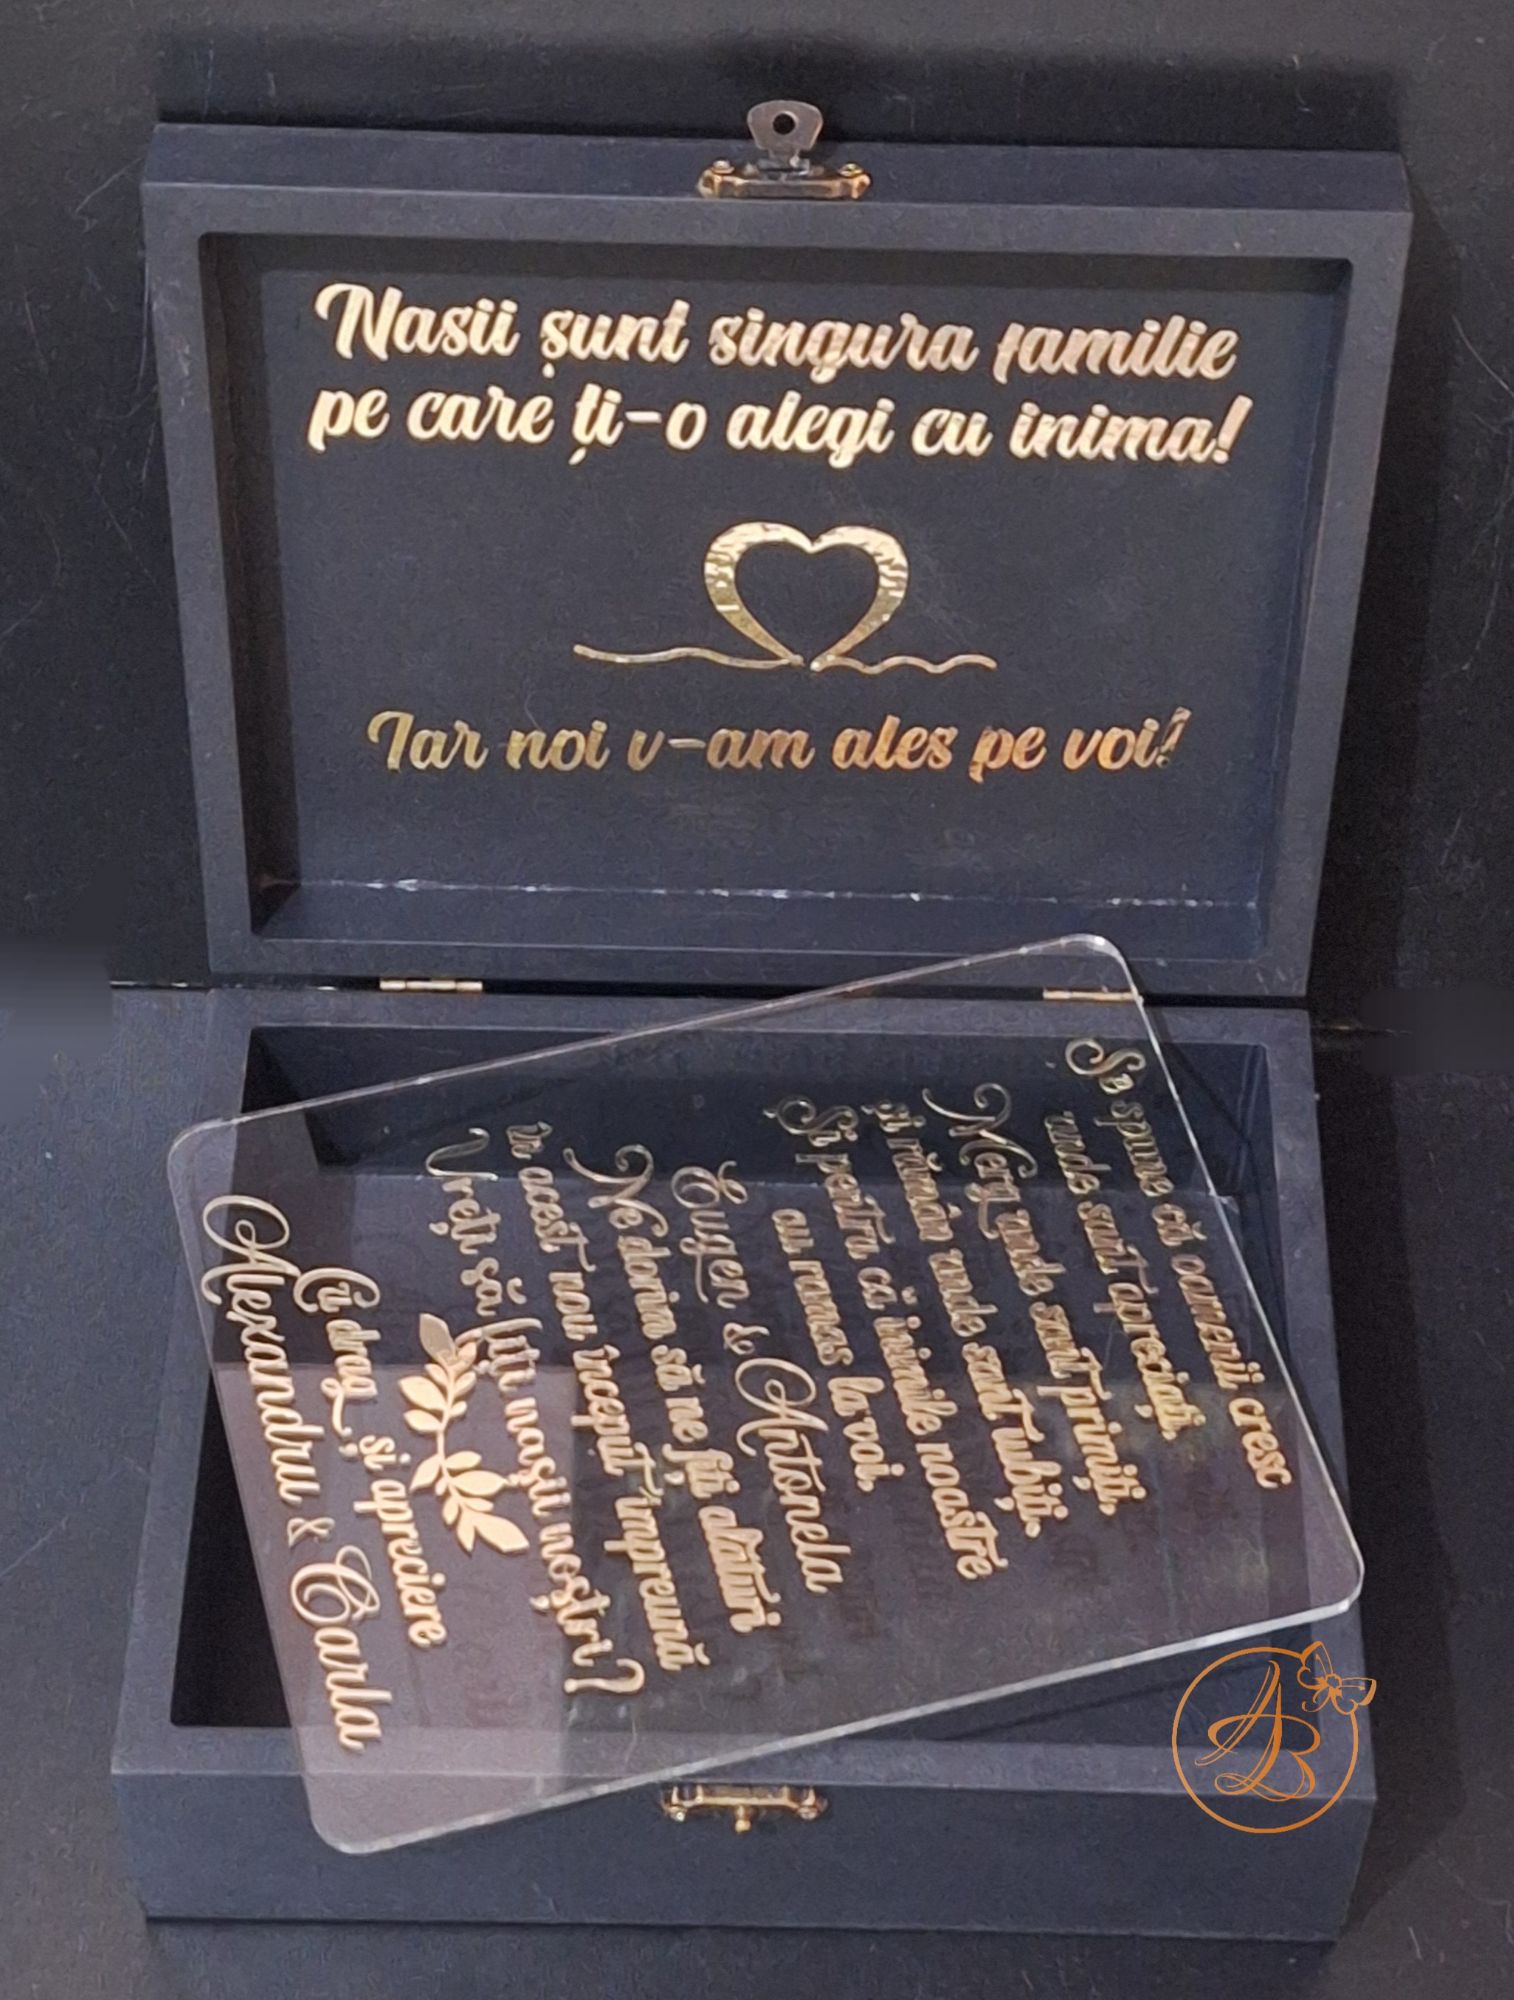 Nasii sunt singura familie
pe care ți-o alegi cu inima!
Iar noi v-am ales pe voi!
Se spune că oamenii cresc
unde sunt apreciați.
Merg unde sunt primiți,
și rămân unde sunt iubiți.
Și pentru că inimile noastre
au rămas la voi,
Eugen & Antonela
Ne dorim să ne fiți alături
în acest nou început împreună
Vreți să fiți nașii noștri?
Cu drag și apreciere
Alexandru & Carla
AB